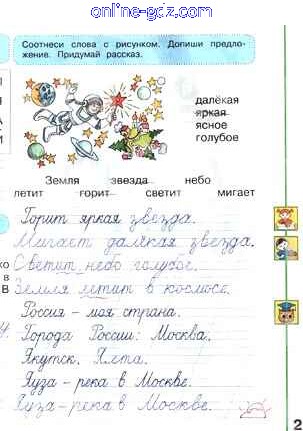 online-gdz.com
Соотнеси слова с рисунком. Допиши предло-
жение. Придумай рассказ.
далёкая
яркая
ясное
голубое
Земля звезда небо
летит горит светит мигает
Горит яркая звезда.
Мигает далёкая звезда.
Светит небо голубое.
Земля летит в космосе.
Россия – моя страна.
Города России: Москва,
Якутск, Ялта.
Яуза – река в Москве.
Яуза – река в Москве.
2